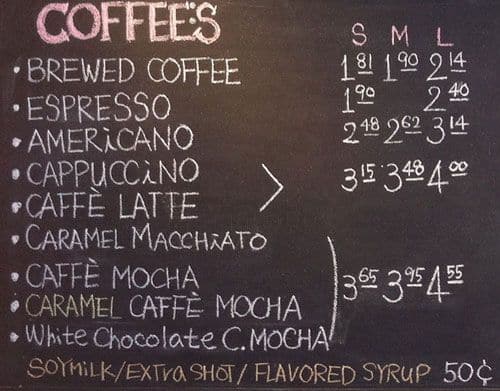 COFFEE'S
S M L
• BREWED COFFEE 1.81 1.90 2.14
• ESPRESSO 1.90 2.40
• AMERICANO 2.48 2.62 3.14
• CAPPUCCINO > 3.15 3.48 4.00
• CAFFÈ LATTE
• CARAMEL MACCHIATO
• CAFFÈ MOCHA 3.65 3.95 4.55
• CARAMEL CAFFÈ MOCHA
• White Chocolate C. MOCHA
SOYMILK/EXTRA SHOT/FLAVORED SYRUP 50¢